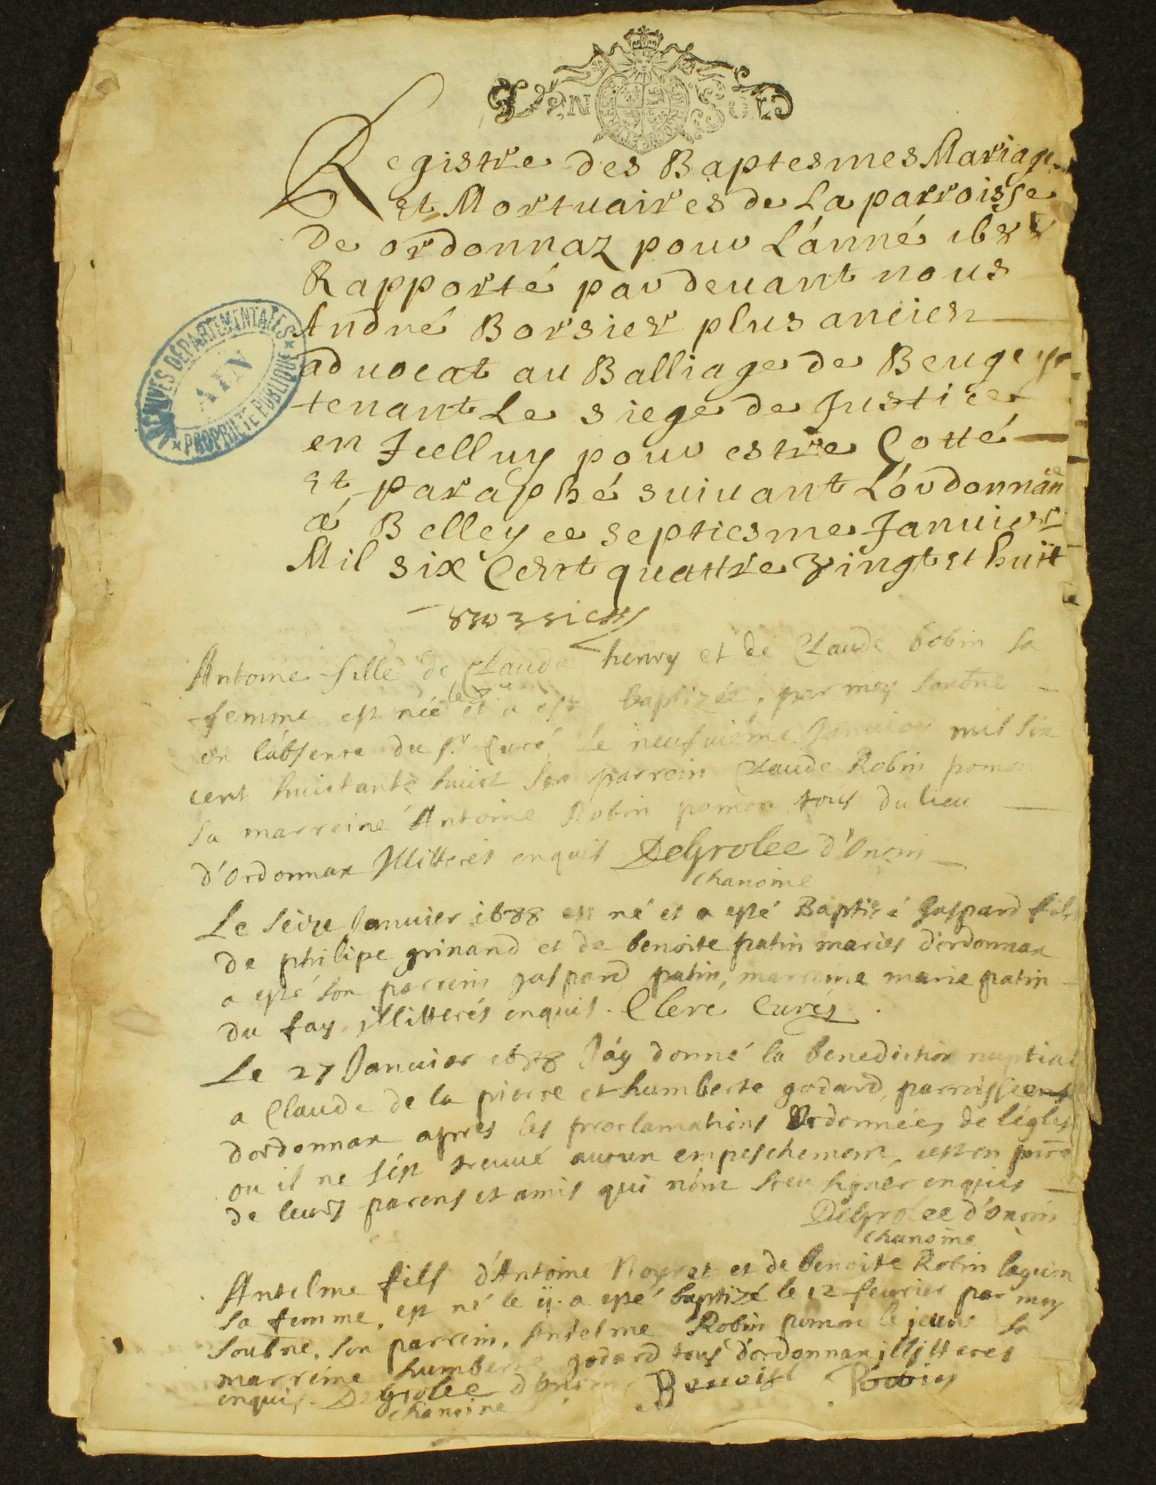 GEN SOLD
Registre des Baptesmes Mariage
et Mortuaires de La parroisse
de ordonnaz pour L'ánné 1688
Rapporté par devant nous
André Borsier plus ancien
advocat au Balliage de Beugey
tenant Le siege de Justice
en Icelluy pour estre Cotté
et paraphé suivant L'ordonnan
á Belley ce septiesme Janvier
Mil six Cent quattre vingt et huit
Borsier
ARCHIVES DÉPARTEMENTALES
AIN
PROPRIÉTÉ PUBLIQUE
Antoine fille de Claude henry et de Claude Robin sa
femme est née et a esté baptizée par moy soubne
en l'absence du sr Curé le neufuiéme Januier mil six
cent huictante huict son parrein Claude Robin pomon
sa marreine Antoine Robin pomon tous du lieu
d'Ordonnax Illitterés enquis DeGrolee d'Oncin
chanoine
Le seize Januier 1688 est né et a esté Baptizé Gaspard fils
de philipe grinand et de benoite patin mariés d'ordonnax
a esté son parrein gaspard patin, marreine marie patin
du fay illitterés enquis. Clerc Curez
Le 27 Januier 1688 J'ay donné la benediction nuptial
a Claude de la pierre et humberte godard, parroissiens
d'ordonnax apres les proclamations ordonnées de l'églis
ou il ne s'est treuué aucun empeschement, et en pnce
de leurs parens et amis qui n'ont sceu signer enquis
DeGrolee d'Oncin
chanoine
Antelme fils d'Antoine Noyret et de benoite Robin
sa femme, est né le ij. a esté baptizé le 12 feurier par moy
soubne, son parrein, Antelme Robin pomon le jeune sa
marreine humberte godard tous d'ordonnax illitteres
enquis. DeGrolee d'Oncin Benoist
chanoine